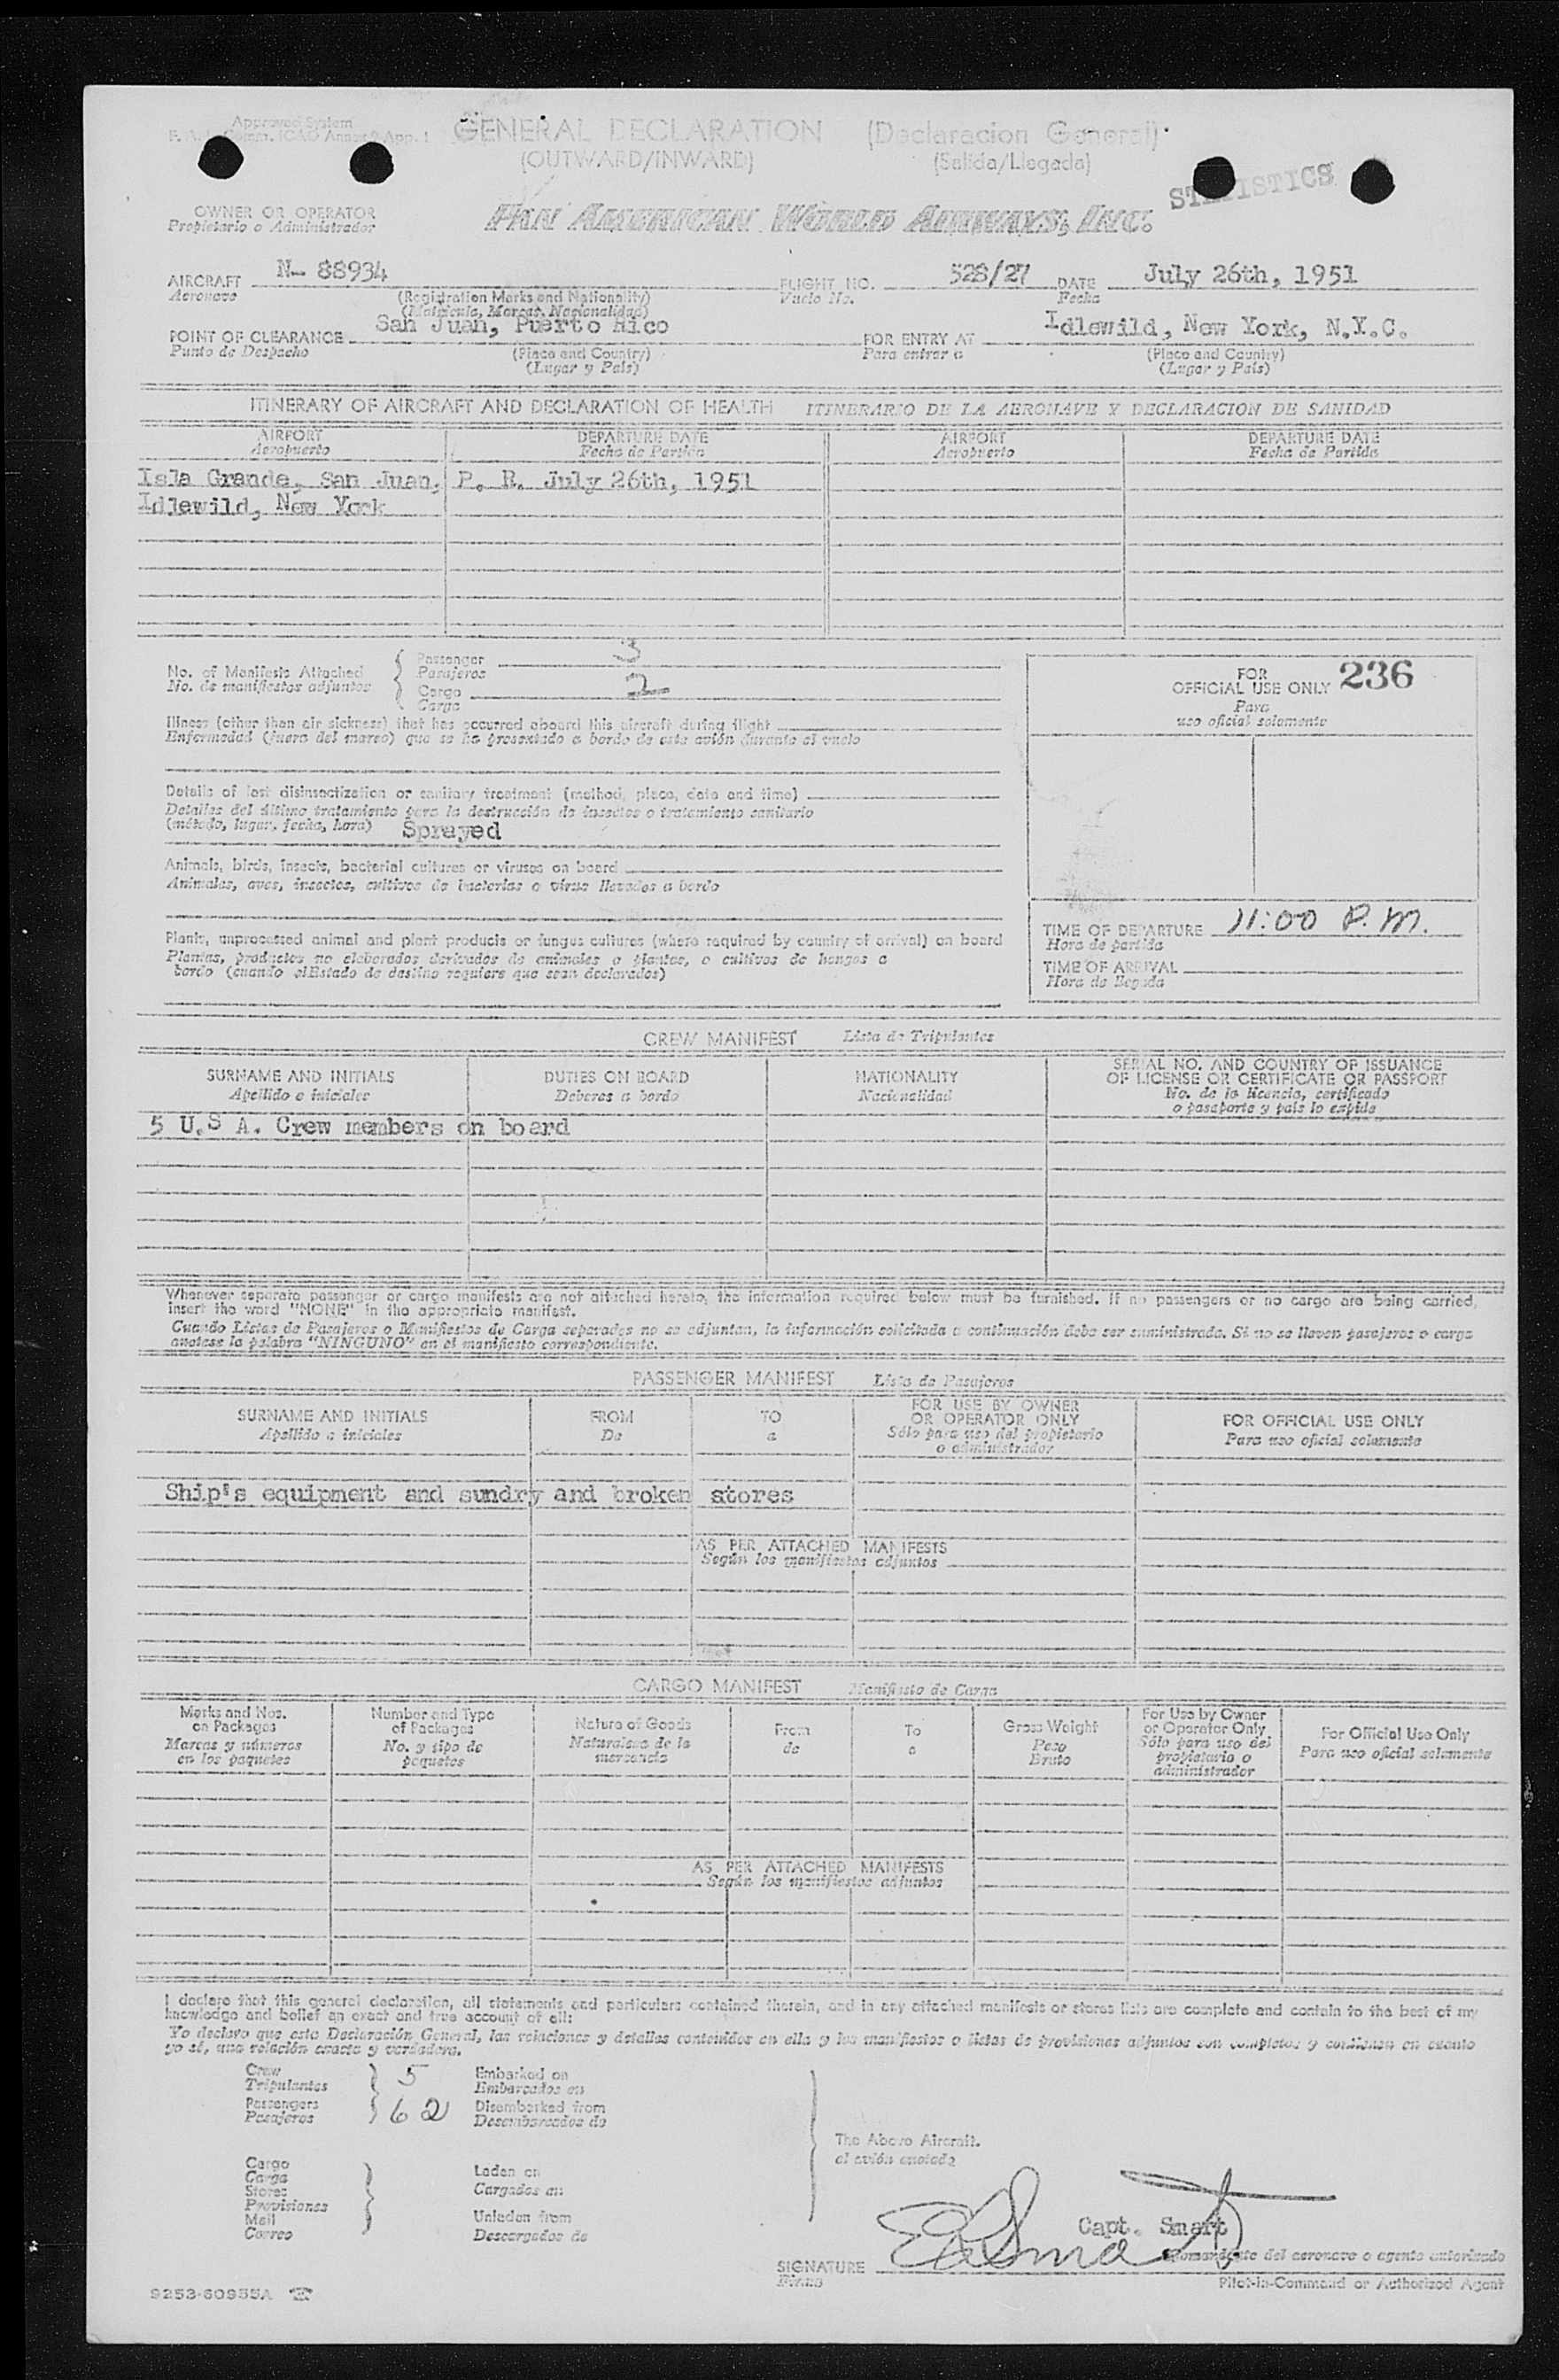 Approved System
GENERAL DECLARATION (Declaracion General)
(OUTWARD/INWARD) (Salida/Llegada)
STATISTICS
OWNER OR OPERATOR
Propietario o Administrador
PAN AMERICAN WORLD AIRWAYS, INC.
AIRCRAFT N- 88934 FLIGHT NO. 528/27 DATE July 26th, 1951
Aeronave (Registration Marks and Nationality) Vuelo No. Fecha
(Matricula, Marcas, Nacionalidad)
POINT OF CLEARANCE San Juan, Puerto Rico FOR ENTRY AT Idlewild, New York, N.Y.C.
Punto de Despacho (Place and Country) Para entrar a (Place and Country)
(Lugar y País) (Lugar y País)
ITINERARY OF AIRCRAFT AND DECLARATION OF HEALTH ITINERARIO DE LA AERONAVE Y DECLARACION DE SANIDAD
AIRPORT DEPARTURE DATE AIRPORT DEPARTURE DATE
Aeropuerto Fecha de Partida Aeropuerto Fecha de Partida
Isla Grande, San Juan, P. R. July 26th, 1951
Idlewild, New York
No. of Manifests Attached Passenger 3
No. de manifiestos adjuntos Pasajeros
Cargo 2
Carga
FOR
OFFICIAL USE ONLY 236
Para
uso oficial solamente
Illness (other than air sickness) that has occurred aboard this aircraft during flight
Enfermedad (fuera del mareo) que se ha presentado a bordo de este avión durante el vuelo
Details of last disinsectization or sanitary treatment (method, place, date and time)
Detalles del último tratamiento para la destrucción de insectos o tratamiento sanitario
(método, lugar, fecha, hora) Sprayed
Animals, birds, insects, bacterial cultures or viruses on board
Animales, aves, insectos, cultivos de bacterias o virus llevados a bordo
Plants, unprocessed animal and plant products or fungus cultures (where required by country of arrival) on board
Plantas, productos no elaborados derivados de animales o plantas, o cultivos de hongos a
bordo (cuando el Estado de destino requiere que sean declarados)
TIME OF DEPARTURE 11:00 P.M.
Hora de partida
TIME OF ARRIVAL
Hora de llegada
CREW MANIFEST Lista de Tripulantes
SURNAME AND INITIALS DUTIES ON BOARD NATIONALITY SERIAL NO. AND COUNTRY OF ISSUANCE
OF LICENSE OR CERTIFICATE OR PASSPORT
Apellido e iniciales Deberes a bordo Nacionalidad No. de la licencia, certificado
o pasaporte y país lo expide
5 U.S A. Crew members on board
Whenever separate passenger or cargo manifests are not attached hereto, the information required below must be furnished. If no passengers or no cargo are being carried,
insert the word "NONE" in the appropriate manifest.
Cuando Listas de Pasajeros o Manifiestos de Carga separados no se adjuntan, la información solicitada a continuación debe ser suministrada. Si no se llevan pasajeros o carga
anótese la palabra "NINGUNO" en el manifiesto correspondiente.
PASSENGER MANIFEST Lista de Pasajeros
SURNAME AND INITIALS FROM TO FOR USE BY OWNER
OR OPERATOR ONLY FOR OFFICIAL USE ONLY
Apellido e iniciales De a Sólo para uso del propietario
o administrador Para uso oficial solamente
Ship's equipment and sundry and broken stores
AS PER ATTACHED MANIFESTS
Según los manifiestos adjuntos
CARGO MANIFEST Manifiesto de Carga
Marks and Nos.
on Packages
Marcas y números
en los paquetes
Number and Type
of Packages
No. y tipo de
paquetes
Nature of Goods
Naturaleza de la
mercancia
From
de
To
a
Gross Weight
Peso
Bruto
For Use by Owner
or Operator Only
Sólo para uso del
propietario o
administrador
For Official Use Only
Para uso oficial solamente
AS PER ATTACHED MANIFESTS
Según los manifiestos adjuntos
I declare that this general declaration, all statements and particulars contained therein, and in any attached manifests or stores lists are complete and contain to the best of my
knowledge and belief an exact and true account of all:
Yo declaro que esta Declaración General, las relaciones y detalles contenidos en ella y los manifiestos o listas de provisiones adjuntos son completos y contienen en cuanto
yo sé, una relación exacta y verdadera.
Crew 5 Embarked on
Tripulantes Embarcados en
Passengers 62 Disembarked from
Pasajeros Desembarcados de
The Above Aircraft.
al avión anotado
Cargo
Carga
Stores
Provisiones
Mail
Correo
Laden on
Cargados en
Unladen from
Descargados de
Capt. Smart
SIGNATURE
Firma
Comandante del aeronave o agente autorizado
Pilot-in-Command or Authorized Agent
9253-60955A